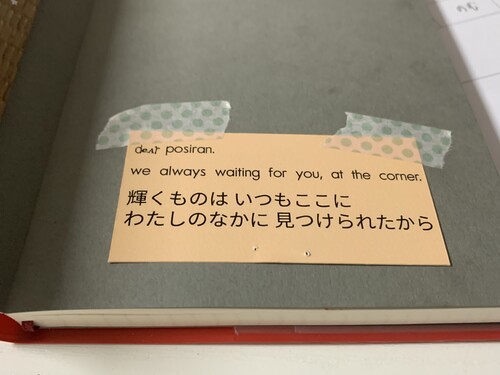 dear posiran.
we always waiting for you, at the corner.
輝くものは いつもここに
わたしのなかに 見つけられたから